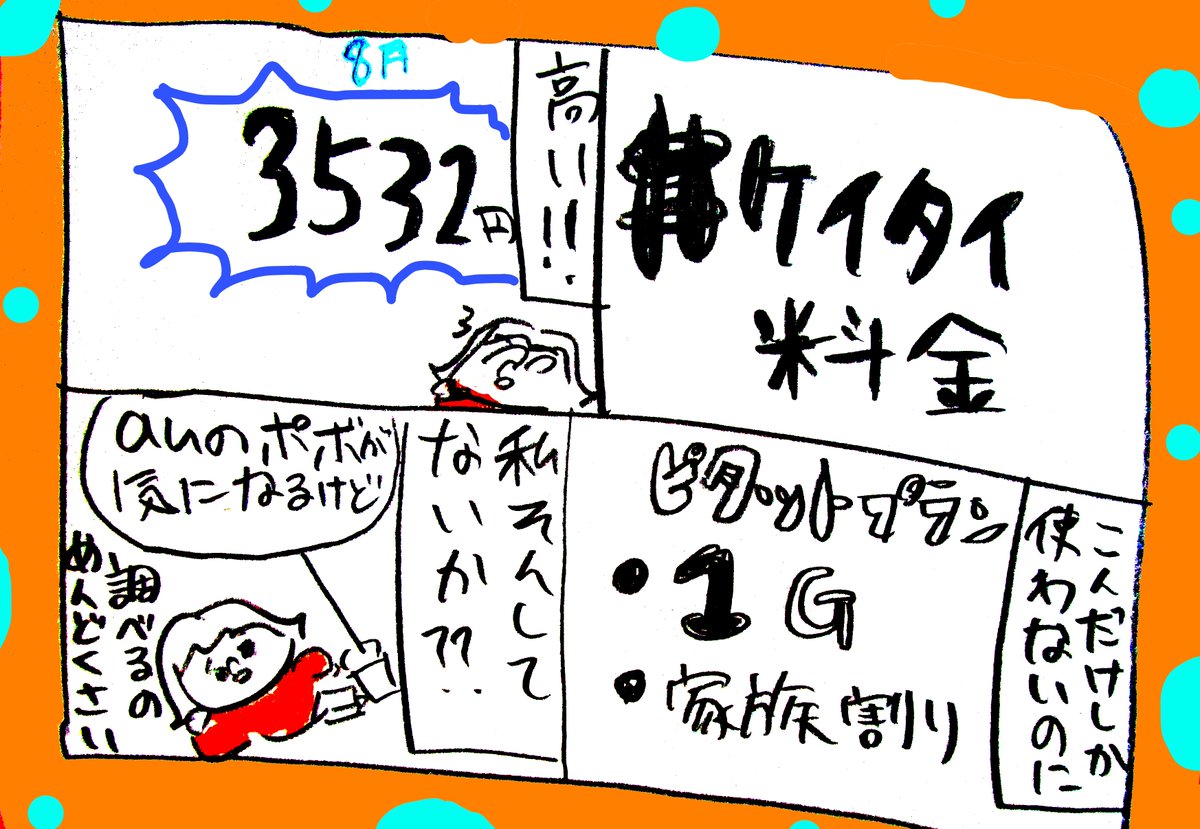 ケイタイ
料金
高いい!!
8月
3532円
こんだけしか
使わないのに
ピタットプラン
・1G
・家族割り
私そんして
ないか??
auのポボが
気になるけど
調べるの
めんどくさい